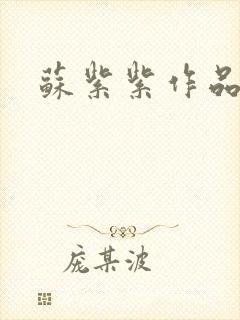 蘇紫紫作品
庞某波